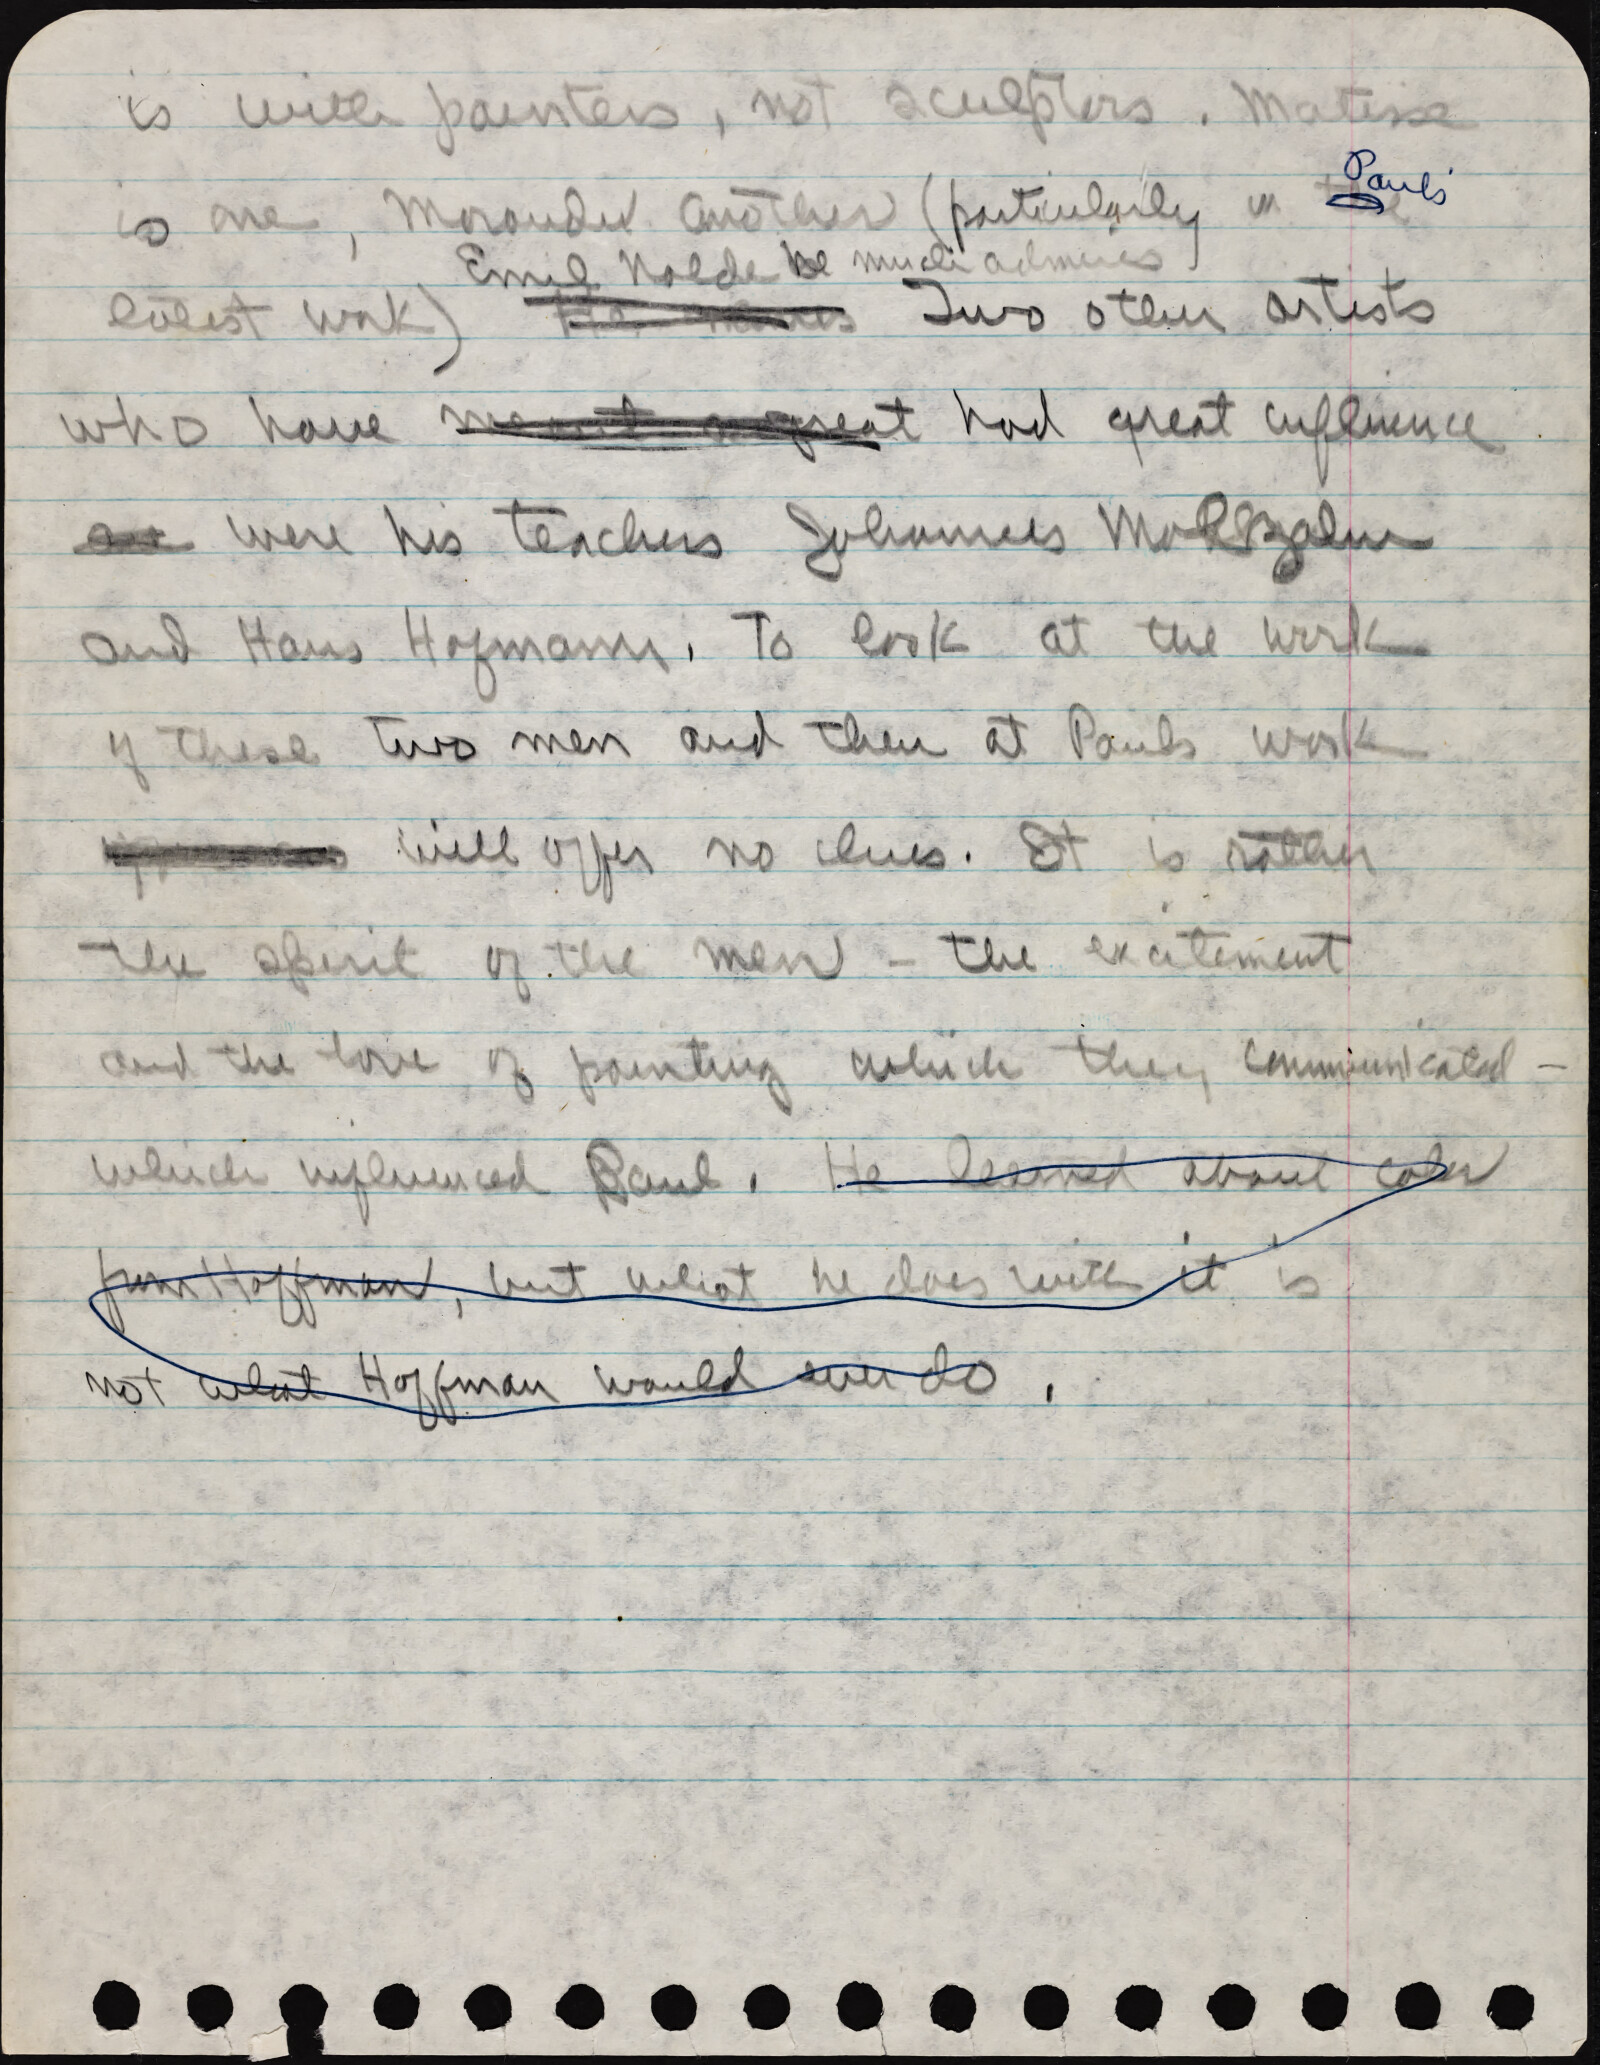 is with painters, not sculptors. Matisse
is one, Morandi another (particularly in the Paul's
Emil Nolde he much admires
latest work) He admires Two other artists
who have great had great influence
are were his teachers Johannes Molzahn
and Hans Hofmann. To look at the work
of these two men and then at Pauls work
will offer no clues. It is rather
the spirit of the men - the excitement
and the love of painting which they communicated -
which influenced Paul. He learned about color
from Hoffman, but what he does with it is
not what Hoffman would ever do.